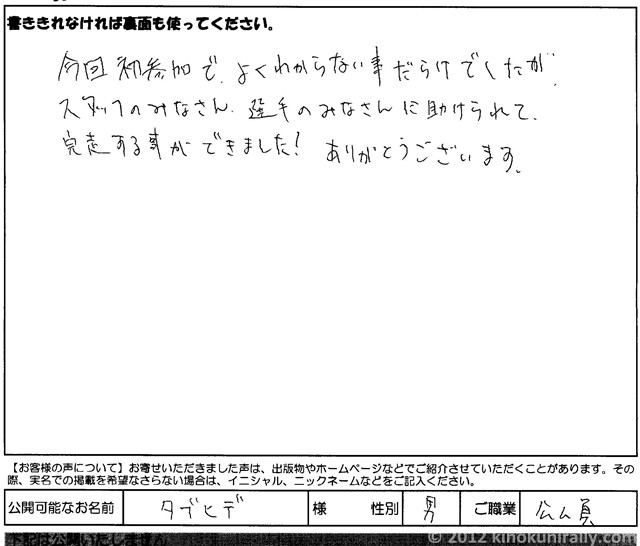 書ききれなければ裏面も使ってください。
今回初参加で、よくわからない事だらけでしたが、
スタッフのみなさん、選手のみなさんに助けられて、
完走する事ができました！ ありがとうございます。
【お客様の声について】お寄せいただきました声は、出版物やホームページなどでご紹介させていただくことがあります。その
際、実名での掲載を希望なさらない場合は、イニシャル、ニックネームなどをご記入ください。
公開可能なお名前 タブヒデ 様 性別 男 ご職業 公ム員
下記は公開いたしません
© 2012 kinokunirally.com